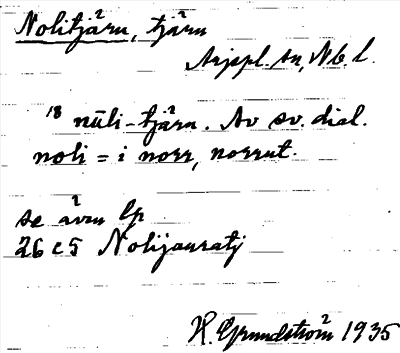 Nolitjärn, tjärn
Arjepl. sn, Nb. l.
18 nūli-tjärn. Av sv. dial.
noli = i norr, norrut.
se även lp
26 e 5 Nolijauratj
H. Grundström 1935